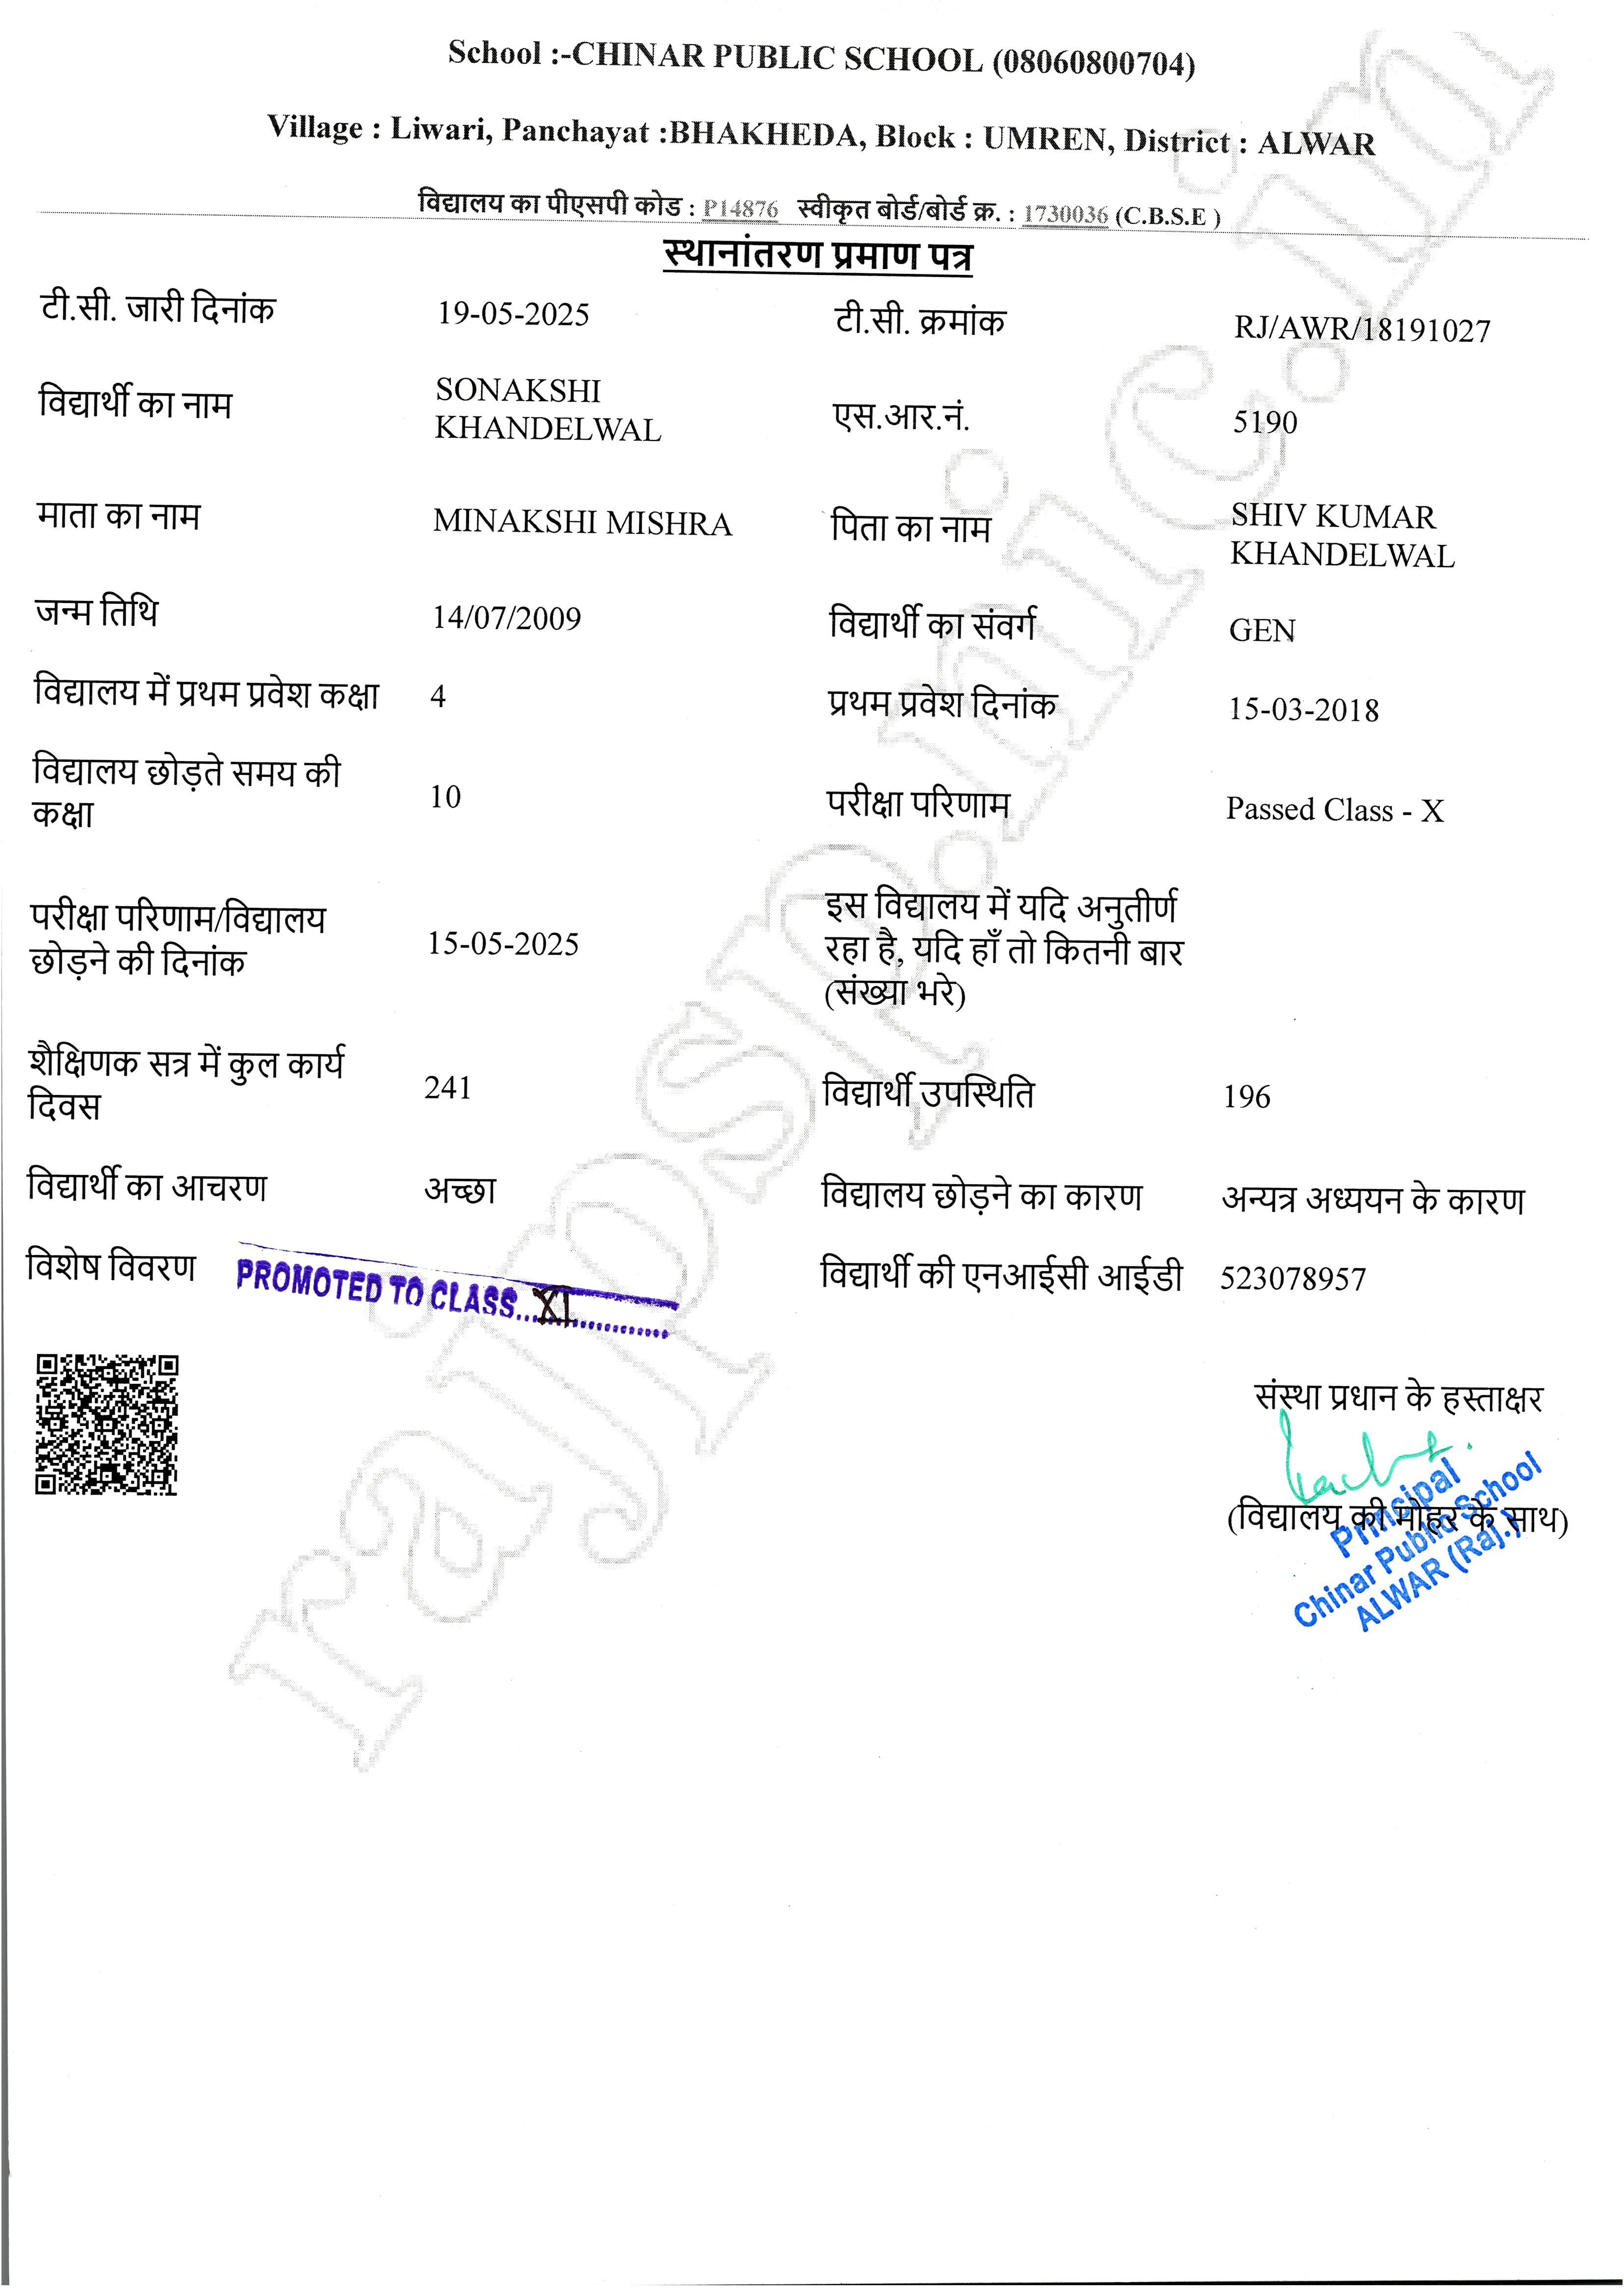 School :-CHINAR PUBLIC SCHOOL (08060800704)
Village : Liwari, Panchayat :BHAKHEDA, Block : UMREN, District : ALWAR
विद्यालय का पीएसपी कोड : P14876 स्वीकृत बोर्ड/बोर्ड क्र. : 1730036 (C.B.S.E )
स्थानांतरण प्रमाण पत्र
टी.सी. जारी दिनांक 19-05-2025 टी.सी. क्रमांक RJ/AWR/18191027
विद्यार्थी का नाम SONAKSHI
KHANDELWAL एस.आर.नं. 5190
माता का नाम MINAKSHI MISHRA पिता का नाम SHIV KUMAR
KHANDELWAL
जन्म तिथि 14/07/2009 विद्यार्थी का संवर्ग GEN
विद्यालय में प्रथम प्रवेश कक्षा 4 प्रथम प्रवेश दिनांक 15-03-2018
विद्यालय छोड़ते समय की
कक्षा 10 परीक्षा परिणाम Passed Class - X
परीक्षा परिणाम/विद्यालय
छोड़ने की दिनांक 15-05-2025
इस विद्यालय में यदि अनुतीर्ण
रहा है, यदि हाँ तो कितनी बार
(संख्या भरे)
शैक्षिणक सत्र में कुल कार्य
दिवस 241 विद्यार्थी उपस्थिति 196
विद्यार्थी का आचरण अच्छा विद्यालय छोड़ने का कारण अन्यत्र अध्ययन के कारण
विशेष विवरण PROMOTED TO CLASS...XI............... विद्यार्थी की एनआईसी आईडी 523078957
संस्था प्रधान के हस्ताक्षर
(विद्यालय की मोहर के साथ)
Principal
Chinar Public School
ALWAR (Raj.)
rajpsp.nic.in